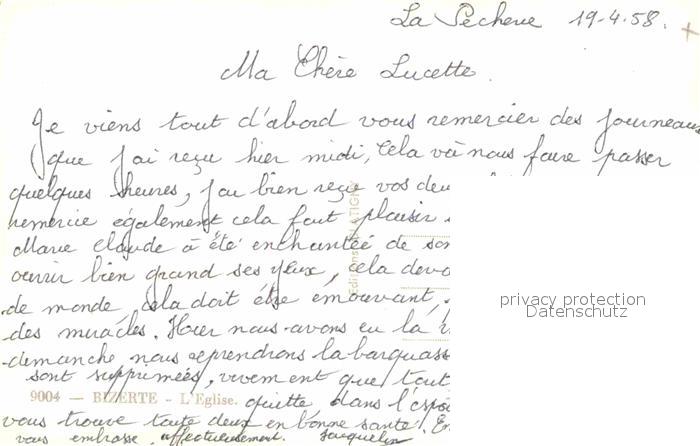 La Pêcherie 19-4.58.
Ma Chère Lucette.
Je viens tout d'abord vous remercier des journeaux
que j'ai reçu hier midi, cela và nous faire passer
quelques heures, j'ai bien reçue vos deu
remercie également cela fait plaisir
Marie Claude à été enchantée de son
ouvrir bien grand ses yeux, cela deva
de monde, cela doit être emouvant,
des miracles. Hier nous avons eu la
demanche nous reprendrons la
sont supprimées, vivement que tout
9004 — BIZERTE - L'Eglise.
quitte dans l'espoi
vous trouve toute deux en bonne santé. En
vous embrasse affectueusement. Jacqueline
Editions
privacy protection
Datenschutz